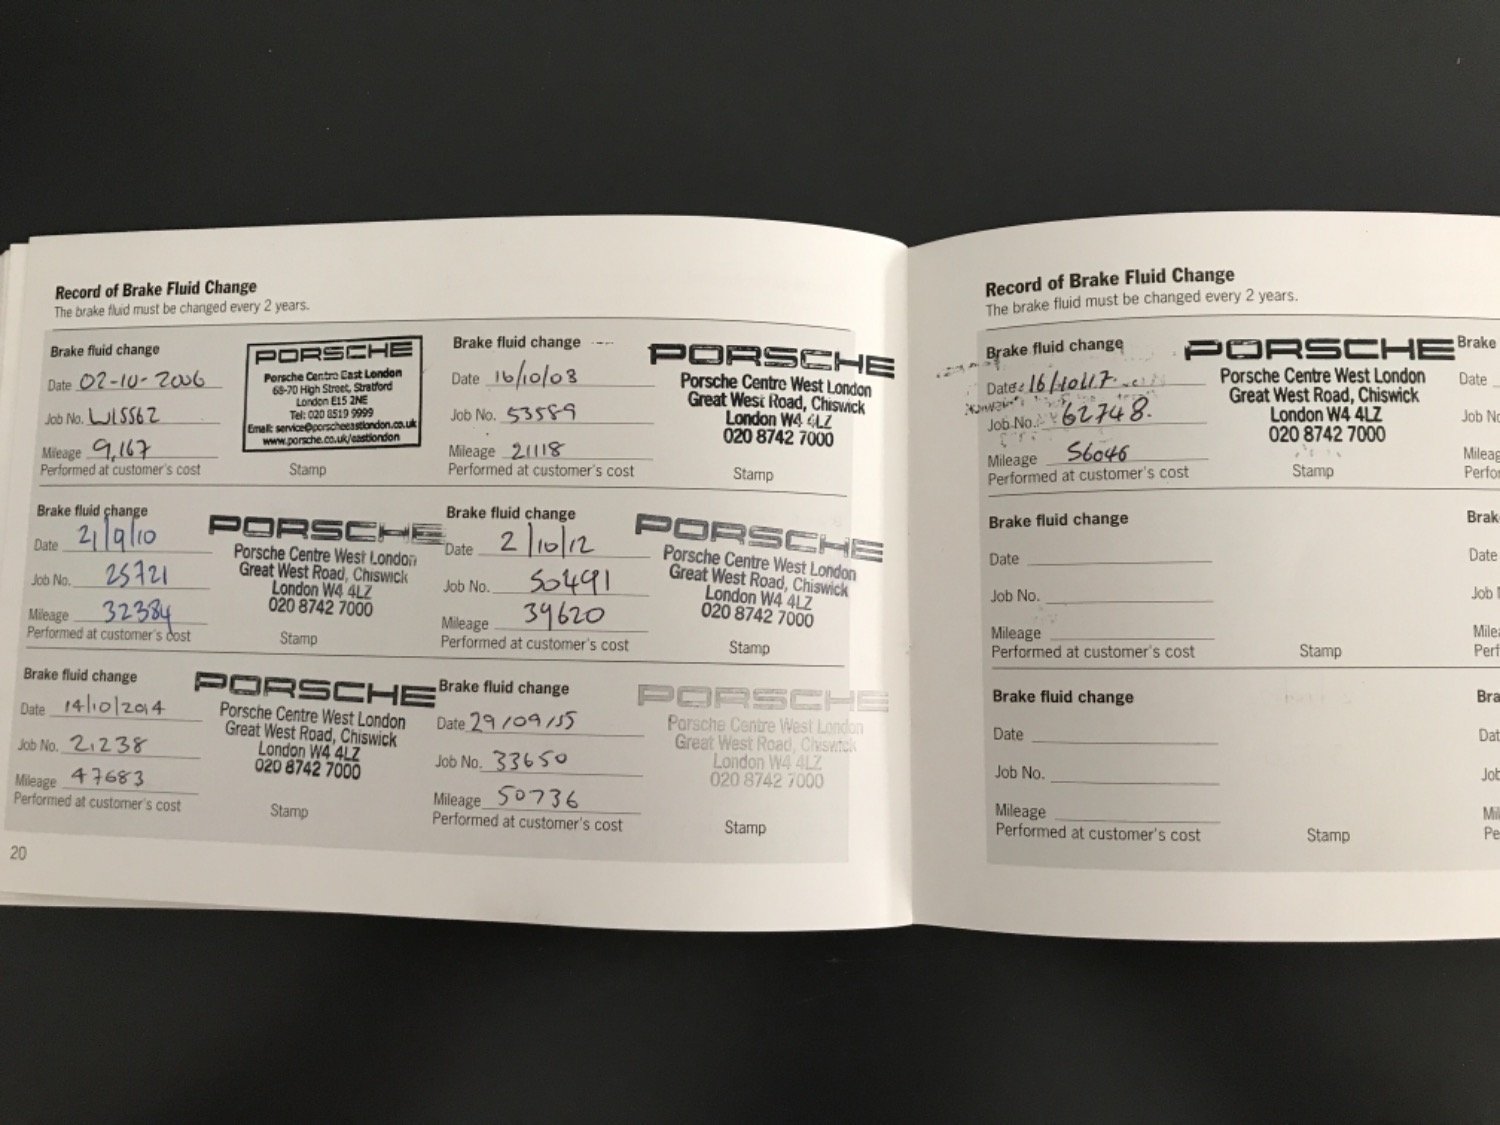 Record of Brake Fluid Change
The brake fluid must be changed every 2 years.
Brake fluid change
Date 02-10-2006
Job No. W15562
Mileage 9,167
Performed at customer's cost
PORSCHE
Porsche Centre East London
68-70 High Street, Stratford
London E15 2NE
Tel: 020 8519 9999
Email: service@porscheeastlondon.co.uk
www.porsche.co.uk/eastlondon
Stamp
Brake fluid change
Date 16/10/08
Job No. 53589
Mileage 21118
Performed at customer's cost
PORSCHE
Porsche Centre West London
Great West Road, Chiswick
London W4 4LZ
020 8742 7000
Stamp
Brake fluid change
Date 21/9/10
Job No. 25721
Mileage 32384
Performed at customer's cost
PORSCHE
Porsche Centre West London
Great West Road, Chiswick
London W4 4LZ
020 8742 7000
Stamp
Brake fluid change
Date 2/10/12
Job No. 50491
Mileage 39620
Performed at customer's cost
PORSCHE
Porsche Centre West London
Great West Road, Chiswick
London W4 4LZ
020 8742 7000
Stamp
Brake fluid change
Date 14/10/2014
Job No. 21238
Mileage 47683
Performed at customer's cost
PORSCHE
Porsche Centre West London
Great West Road, Chiswick
London W4 4LZ
020 8742 7000
Stamp
Brake fluid change
Date 29/09/15
Job No. 33650
Mileage 50736
Performed at customer's cost
PORSCHE
Porsche Centre West London
Great West Road, Chiswick
London W4 4LZ
020 8742 7000
Stamp
20
Record of Brake Fluid Change
The brake fluid must be changed every 2 years.
Brake fluid change
Date: 16/10/17
Job No. 62748.
Mileage 56046
Performed at customer's cost
PORSCHE
Porsche Centre West London
Great West Road, Chiswick
London W4 4LZ
020 8742 7000
Stamp
Brake
Date
Job
Brake fluid change
Date
Job No.
Mileage
Performed at customer's cost
Stamp
Date
Job
Brake fluid change
Date
Job No.
Mileage
Performed at customer's cost
Stamp